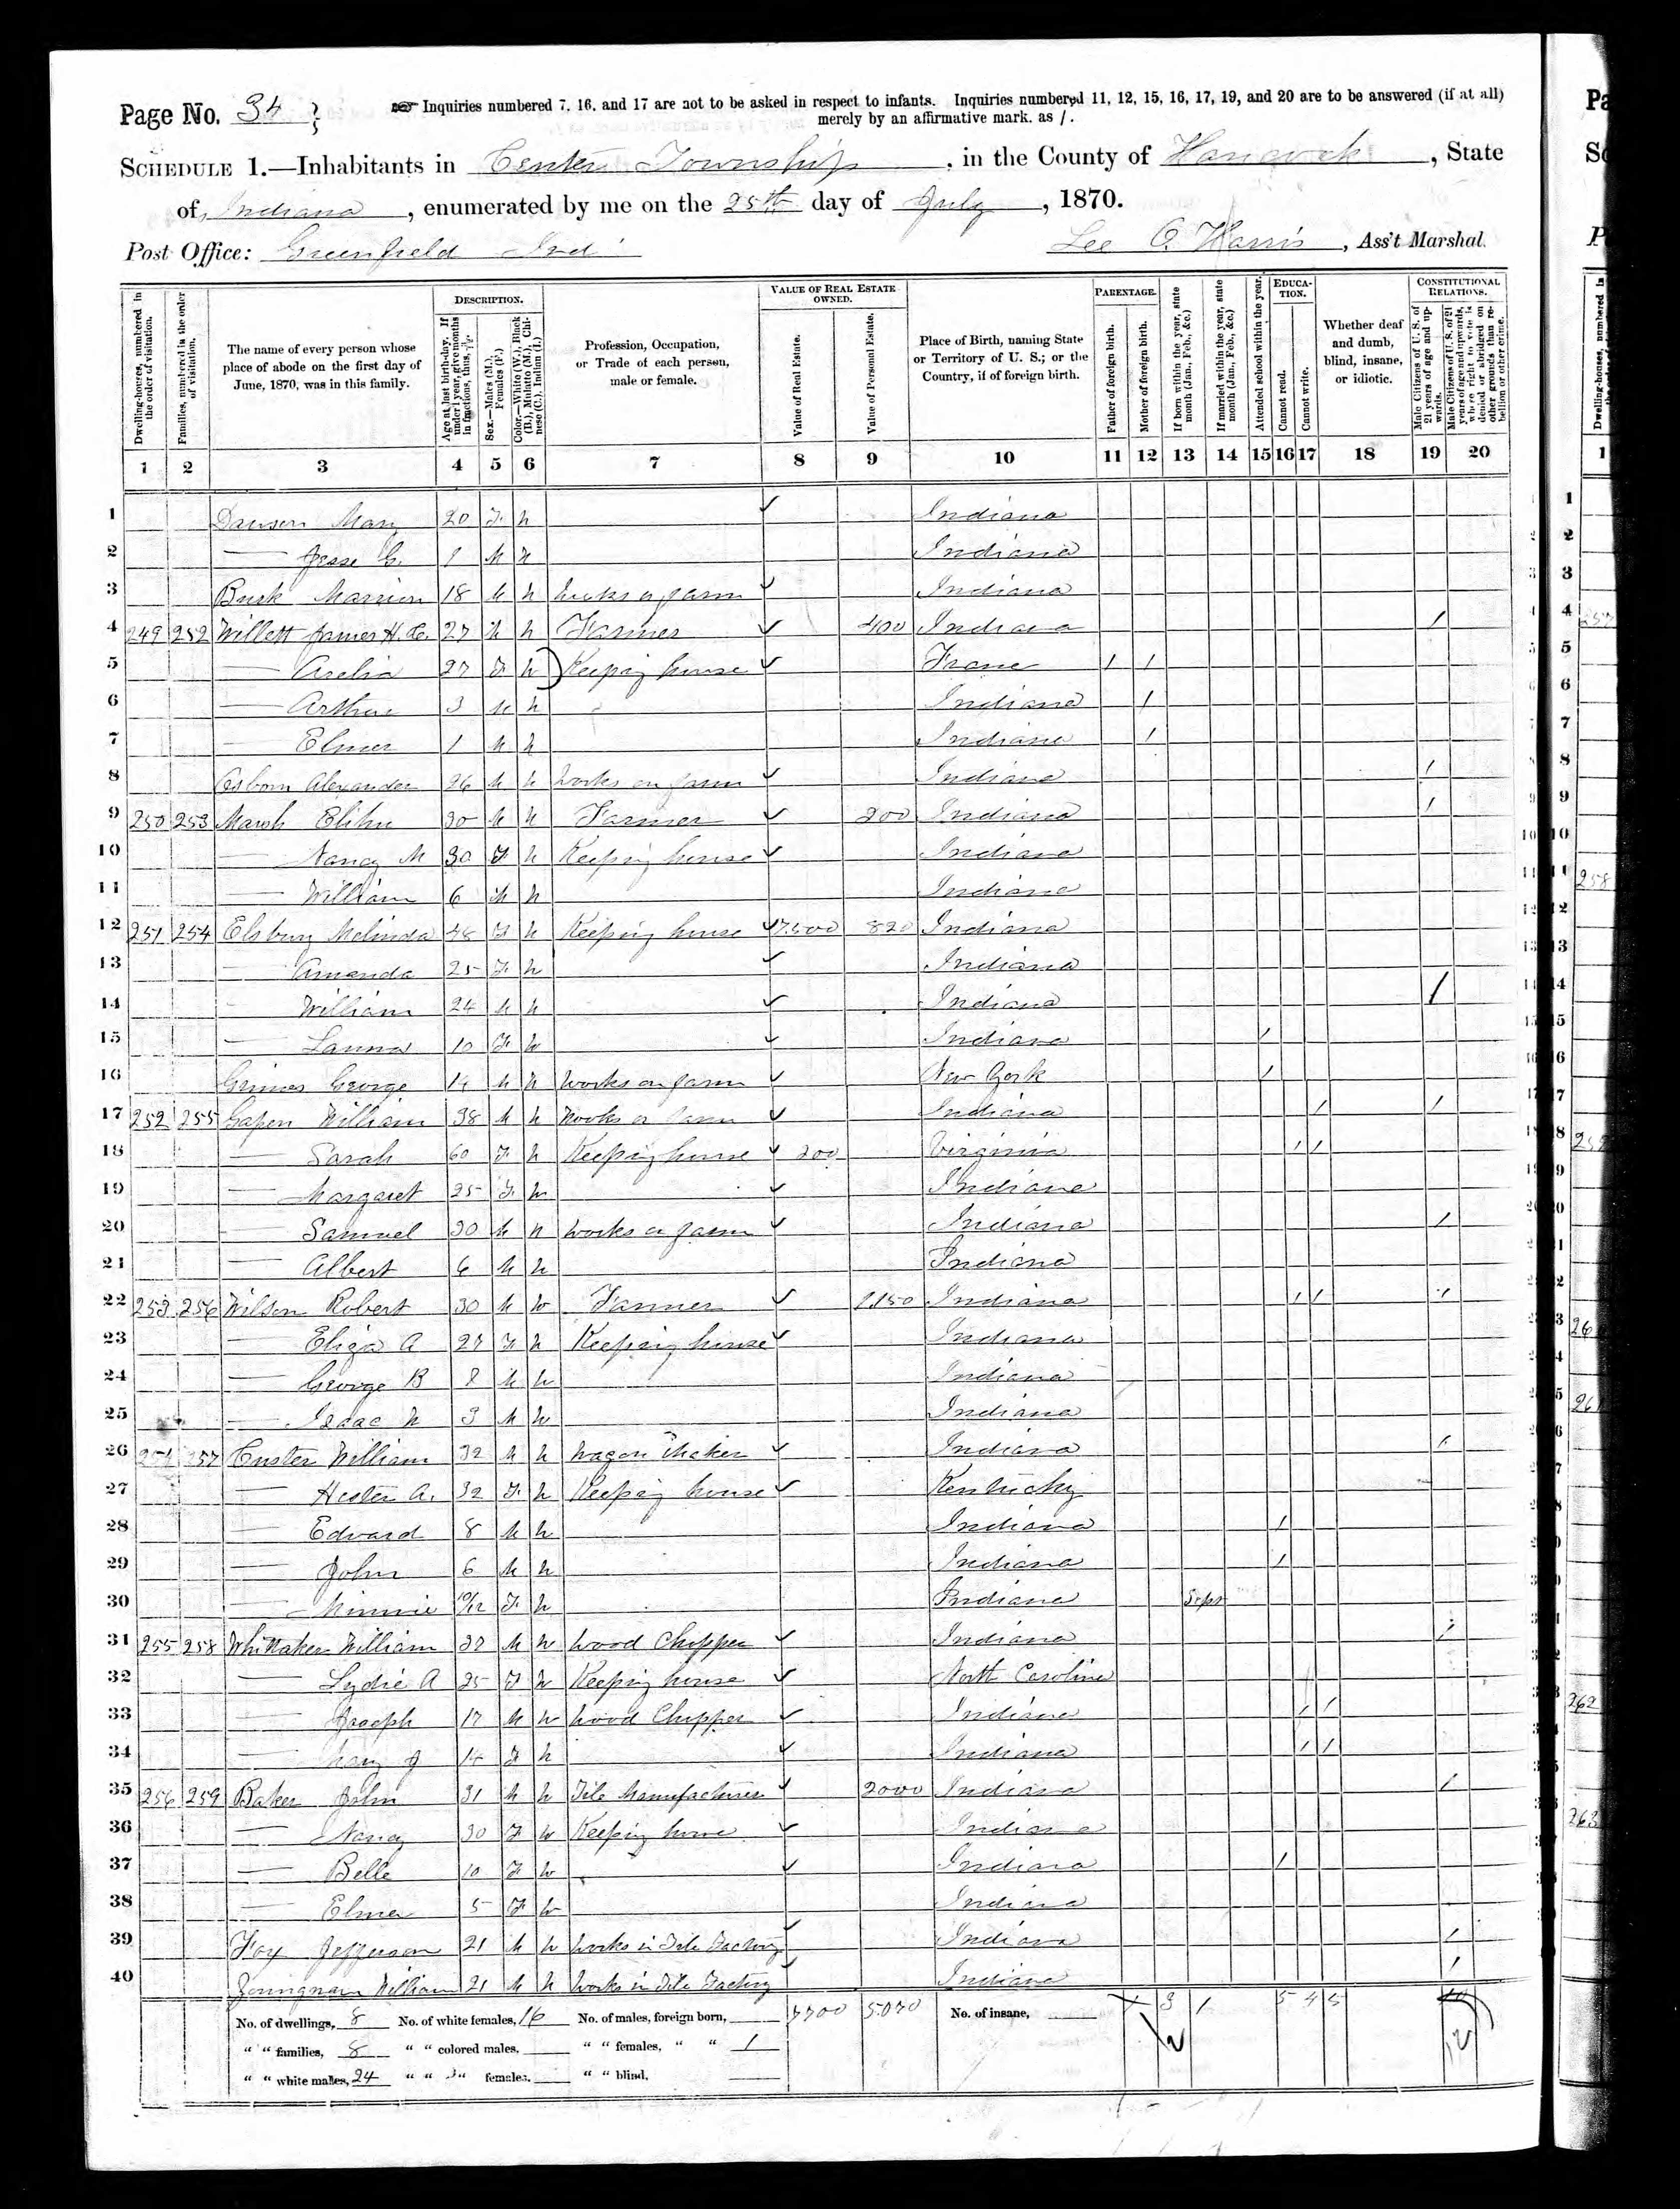 Page No. 34
Inquiries numbered 7, 16, and 17 are not to be asked in respect to infants. Inquiries numbered 11, 12, 15, 16, 17, 19, and 20 are to be answered (if at all)
merely by an affirmative mark. as /.
SCHEDULE 1.—Inhabitants in Center Township, in the County of Hancock, State
of Indiana, enumerated by me on the 25th day of July, 1870.
Post Office: Greenfield Ind
Lee O. Harris, Ass't Marshal.
Dwelling-houses, numbered in the order of visitation.
Families, numbered in the order of visitation.
The name of every person whose place of abode on the first day of June, 1870, was in this family.
DESCRIPTION.
Age at last birth-day. If under 1 year, give months in fractions, thus, 3/12.
Sex.—Males (M.), Females (F.)
Color.—White (W.), Black (B.), Mulatto (M.), Chinese (C.), Indian (I.)
Profession, Occupation, or Trade of each person, male or female.
VALUE OF REAL ESTATE OWNED.
Value of Real Estate.
Value of Personal Estate.
Place of Birth, naming State or Territory of U. S.; or the Country, if of foreign birth.
PARENTAGE.
Father of foreign birth.
Mother of foreign birth.
If born within the year, state month (Jan., Feb., &c.)
If married within the year, state month (Jan., Feb., &c.)
Attended school within the year.
EDUCATION.
Cannot read.
Cannot write.
Whether deaf and dumb, blind, insane, or idiotic.
CONSTITUTIONAL RELATIONS.
Male Citizens of U. S. of 21 years of age and upwards.
Male Citizens of U. S. of 21 years of age and upwards, whose right to vote is denied or abridged on other grounds than rebellion or other crime.
1 2 3 4 5 6 7 8 9 10 11 12 13 14 15 16 17 18 19 20
1 Dawson Mary 20 F W Indiana
2 — Jesse 1 M W Indiana
3 Busk Marrion 18 M W Works on farm Indiana
4 249 252 Willett James H. 27 M W Farmer 400 Indiana /
5 — 27 F W Keeping house France / /
6 — Arthur 3 M W Indiana /
7 — Elmer 1 M W Indiana /
8 Osborn Alexander 26 M W Works on farm Indiana /
9 250 253 Marsh Elihu 30 M W Farmer 200 Indiana /
10 — Nancy M 30 F W Keeping house Indiana
11 — William 6 M W Indiana
12 251 254 Elsbury Melinda 48 F W Keeping house 17500 820 Indiana
13 — Amanda 25 F W Indiana
14 — William 24 M W Indiana /
15 — 10 F W Indiana /
16 Grimes George 14 M W Works on farm New York /
17 252 255 Gapen William 38 M W Works on farm Indiana / /
18 — Sarah 60 F W Keeping house 200 Virginia / /
19 — Margaret 25 F W Indiana
20 — Samuel 30 M W Works on farm Indiana /
21 — Albert 6 M W Indiana
22 253 256 Wilson Robert 30 M W Farmer 1,150 Indiana / / /
23 — Eliza A 27 F W Keeping house Indiana
24 — George B 8 M W Indiana
25 — Isaac N 3 M W Indiana
26 254 257 Custer William 32 M W Wagon Maker Indiana /
27 — Hester A. 32 F W Keeping house Kentucky
28 — Edward 8 M W Indiana /
29 — John 6 M W Indiana /
30 — Minnie 10/12 F W Indiana Sept
31 255 258 Whittaker William 32 M W Wood Chopper Indiana /
32 — Lydie A 25 F W Keeping house North Carolina
33 — Joseph 17 M W Wood Chopper Indiana / /
34 — Mary J 14 F W Indiana / /
35 256 259 Baker John 31 M W Tile Manufacturer 2000 Indiana /
36 — Nancy 30 F W Keeping house Indiana
37 — Belle 10 F W Indiana /
38 — Elmer 5 F W Indiana
39 Fox Jefferson 21 M W Works in Tile Factory Indiana /
40 Youngman William 21 M W Works in Tile Factory Indiana /
No. of dwellings, 8 No. of white females, 16 No. of males, foreign born, 7700 5070 No. of insane, 1 3 1 5 4 5
" " families, 8 " " colored males, " " females, " " 1
" " white males, 24 " " " females, " " blind,